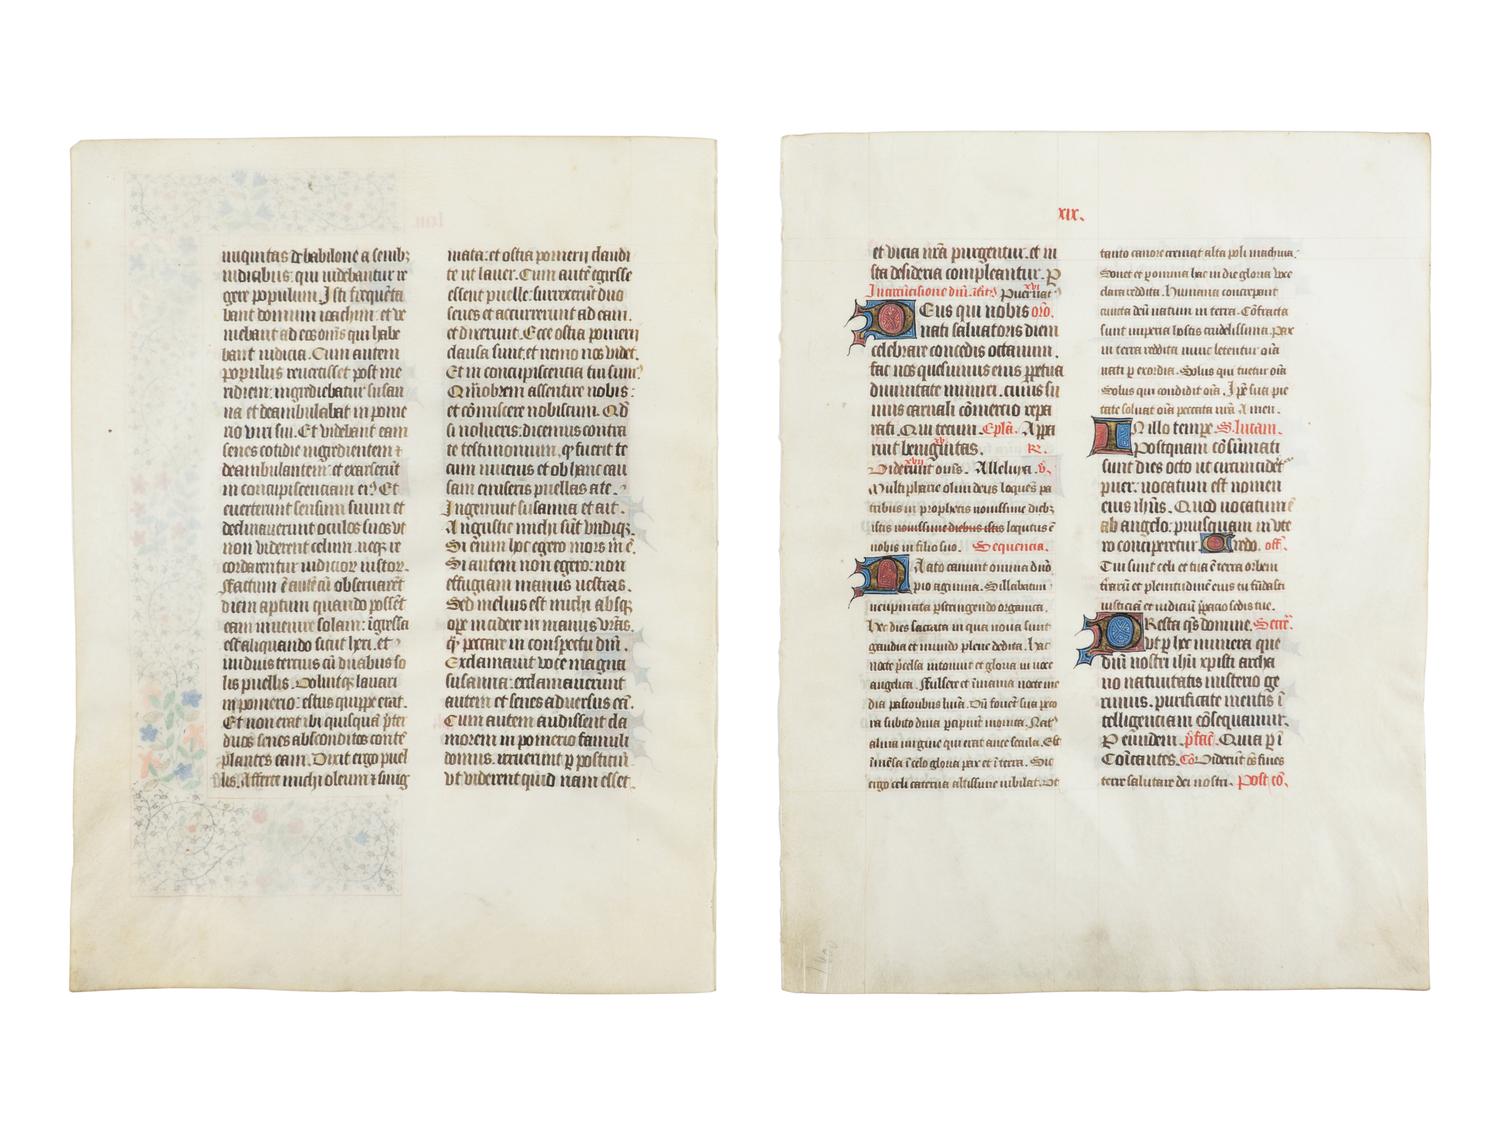 iniquitas de babilone a senibz
iudicibus: qui videbantur re
gere populum. Isti frequeta
bant domum ioachim: et ve
niebant ad eos oms qui habe
bant iudicia. Cum autem
populus revertisset post me
ridiem: ingrediebatur susan
na et deambulabat in pome
rio viri sui. Et videbant eam
senes cotidie ingredientem et
deambulantem: et exarserut
in concupiscentiam eiꝰ. Et
everterunt sensum suum et
declinaverunt oculos suos vt
non viderent celum: neqz re
cordarentur iudicior iustor.
Factum e aute cu observaret
diem aptum quando posset
eam invenire solam: igressa
est aliquando sicut heri. et
nudiustercius cu duabus so
lis puellis. Voluitqz lavari
in pomerio: estus quippe erat.
Et non erat ibi quisqua preter
duos senes absconditos conte
plantes eam. Dixit ergo puel
lis. Afferte michi oleum et smig
mata: et ostia pomerii claudi
te ut laver. Cum aute egresse
essent puelle: surrexerut duo
senes et accurrerunt ad eam.
et dixerunt. Ecce ostia pomerii
clausa sunt: et nemo nos videt.
Et in concupiscentia tui sumꝰ
Qmobrem assentire nobis:
et comiscere nobiscum. Qd
si nolueris: dicemus contra
te testimonium. q fuerit te
cum iuvenis et ob hanc cau
sam emiseris puellas a te.
Ingemuit susanna et ait.
Angustie michi sut vndiqz.
Si enim hoc egero mors m e.
Si autem non egero: non
effugiam manus vestras.
Sed melius est michi absqz
ope incidere in manus vras.
q peccare in conspectu dni.
Exclamavit voce magna
susanna: exclamaverunt
autem et senes adversus ea.
Cum autem audissent cla
morem in pomerio famuli
domus. irruerunt p posticu:
vt viderent quid nam esset.
xix.
et vicia nra purgentur. et iu
sta desideria compleantur. P
In circucisione dni. Puer nat
Deus qui nobis oro.
nati salvatoris diem
celebrare concedis octavum.
fac nos quesumus eius ppetua
divinitate muniri. cuius su
mus carnali comercio repa
rati. Qui tecum. Epla. Appa
ruit benignitas. R.
Viderunt oms. Alleluya. v.
Multipharie olim deus loques pa
tribus in prophetis novissime diebz
istis novissime diebus istis loqutus e
nobis in filio suo. Sequencia.
Nato canunt omnia dno
pio agmina. Sillabatim
neupmata pstringendo organica.
Hec dies sacrata in qua nova sunt
gaudia et mundo plene dedita. Hac
nocte pcelsa intonuit et gloria in voce
angelica. Fulsere et imania nocte me
dia pastoribus lumia. Dn fovent sua peco
ra subito diva pcipiunt monita. Nat
alma virgine qui erat ante secula. Est
imesa i celo gloria pax et i terra. Sic
ergo celi caterva altissime iubilat. Vt
tanto canore tremat alta poli machina.
Sonet et pomnia hac in die gloria voce
clara reddita. Humana concrepant
cuncta deu natum in terra. Cofracta
sunt imperia hostis crudelissima. Pax
in terra reddita nunc letentur oia
nati p exordia. Solus qui tuetur oia
Solus qui condidit oia. Ipe sua pie
tate solvat oia peccata nra Amen.
In illo tempe S. lucam.
Postquam cosumati
sunt dies octo ut circumcidet
puer: vocatum est nomen
eius ihus. Quod vocatum e
ab angelo: priusquam in vte
ro conciperetur Credo. off.
Tui sunt celi et tua e terra orbem
traru et plenitudine eius tu fudasti
iusticia et iudiciu pparacio sedis tue.
Presta qs domine. Secr.
vt p hec munera que
dni nostri ihu xpisti archa
no nativitatis misterio ge
rimus. purificate mentis i
telligenciam cosequamur.
P eundem. pfac. Quia p i
Coicantes. Co Viderut oes fines
terre salutare dei nostri. Post co.